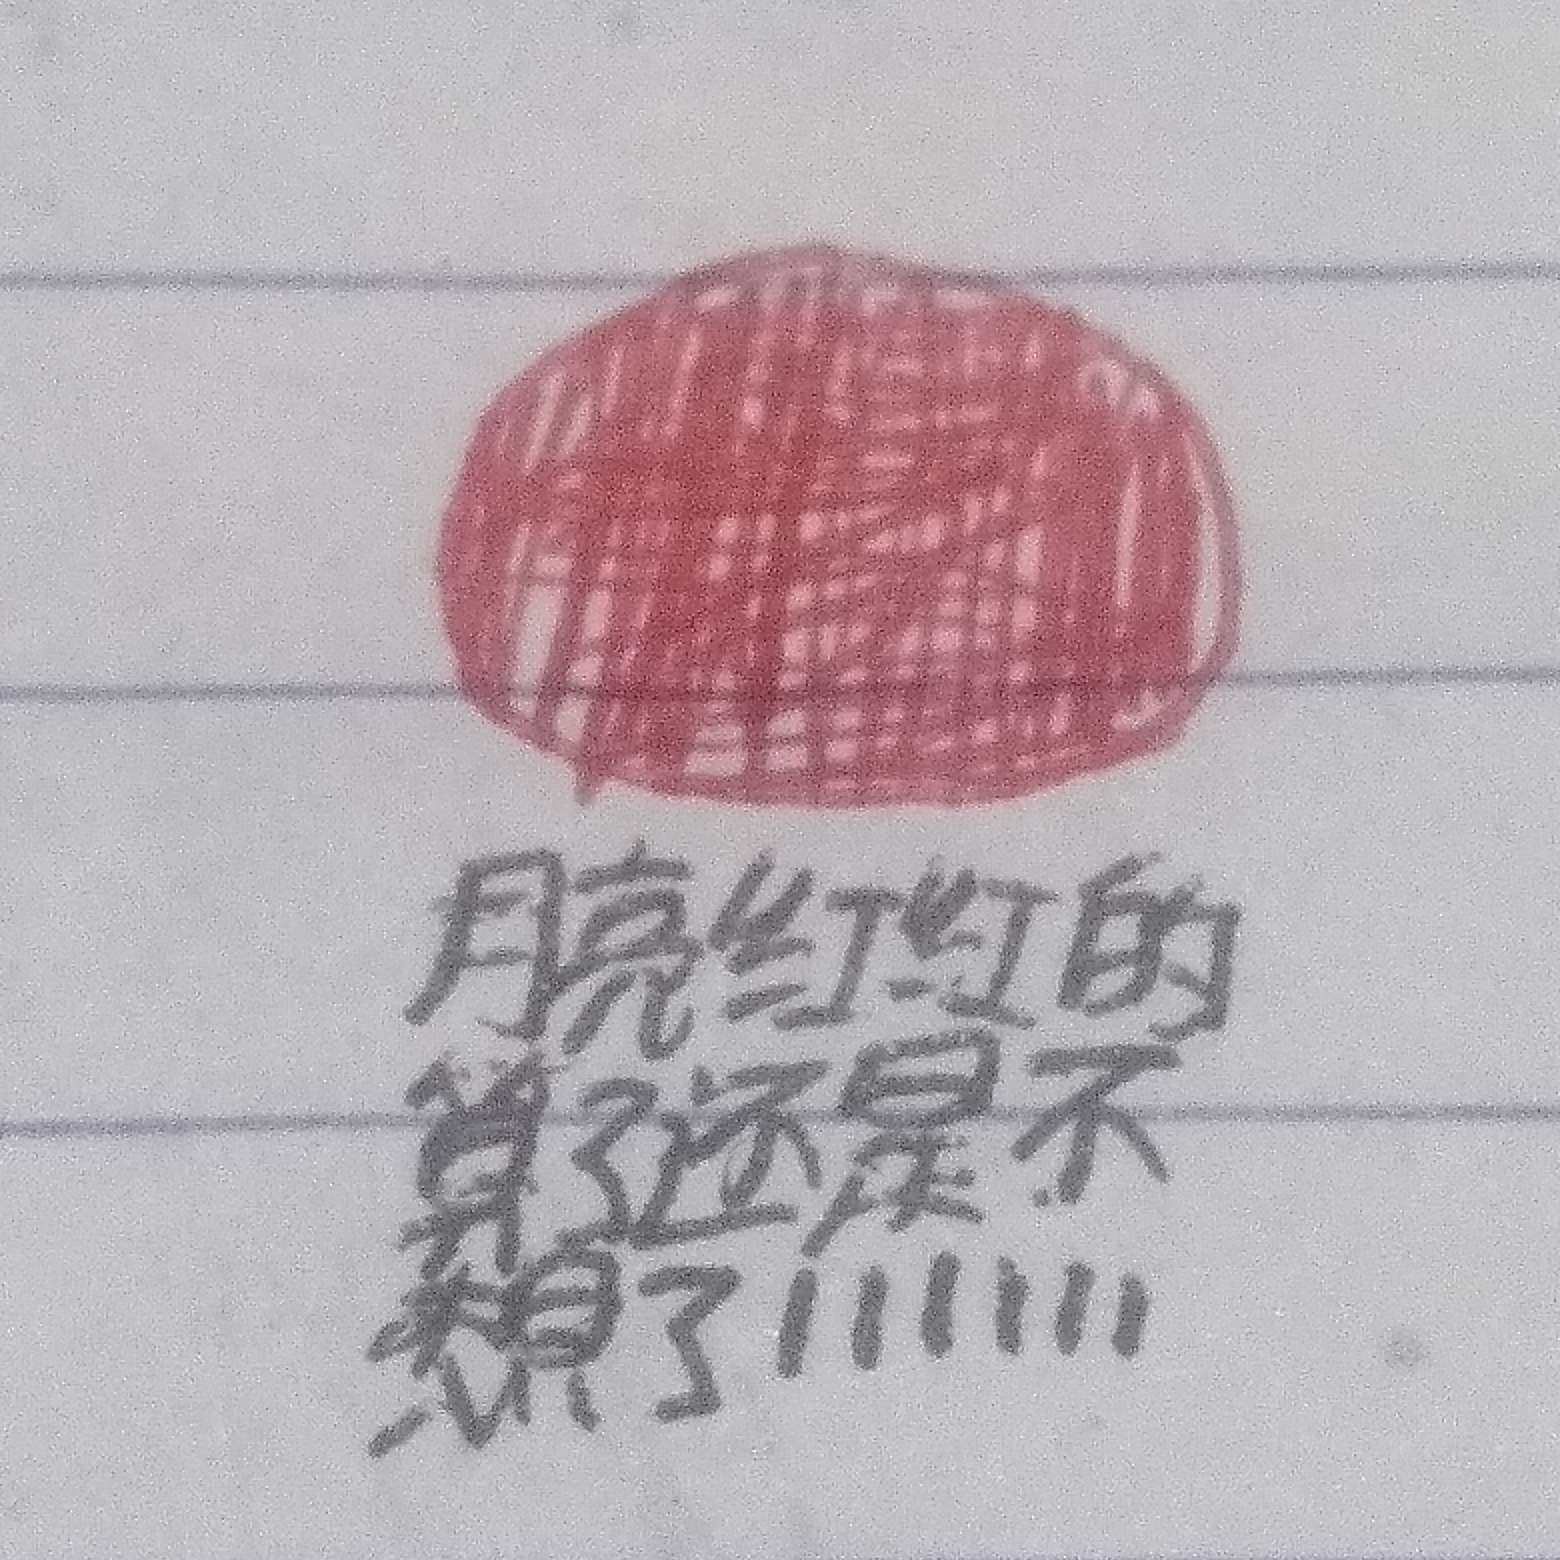 月亮红红的
算了还是不
想了!!!!!!